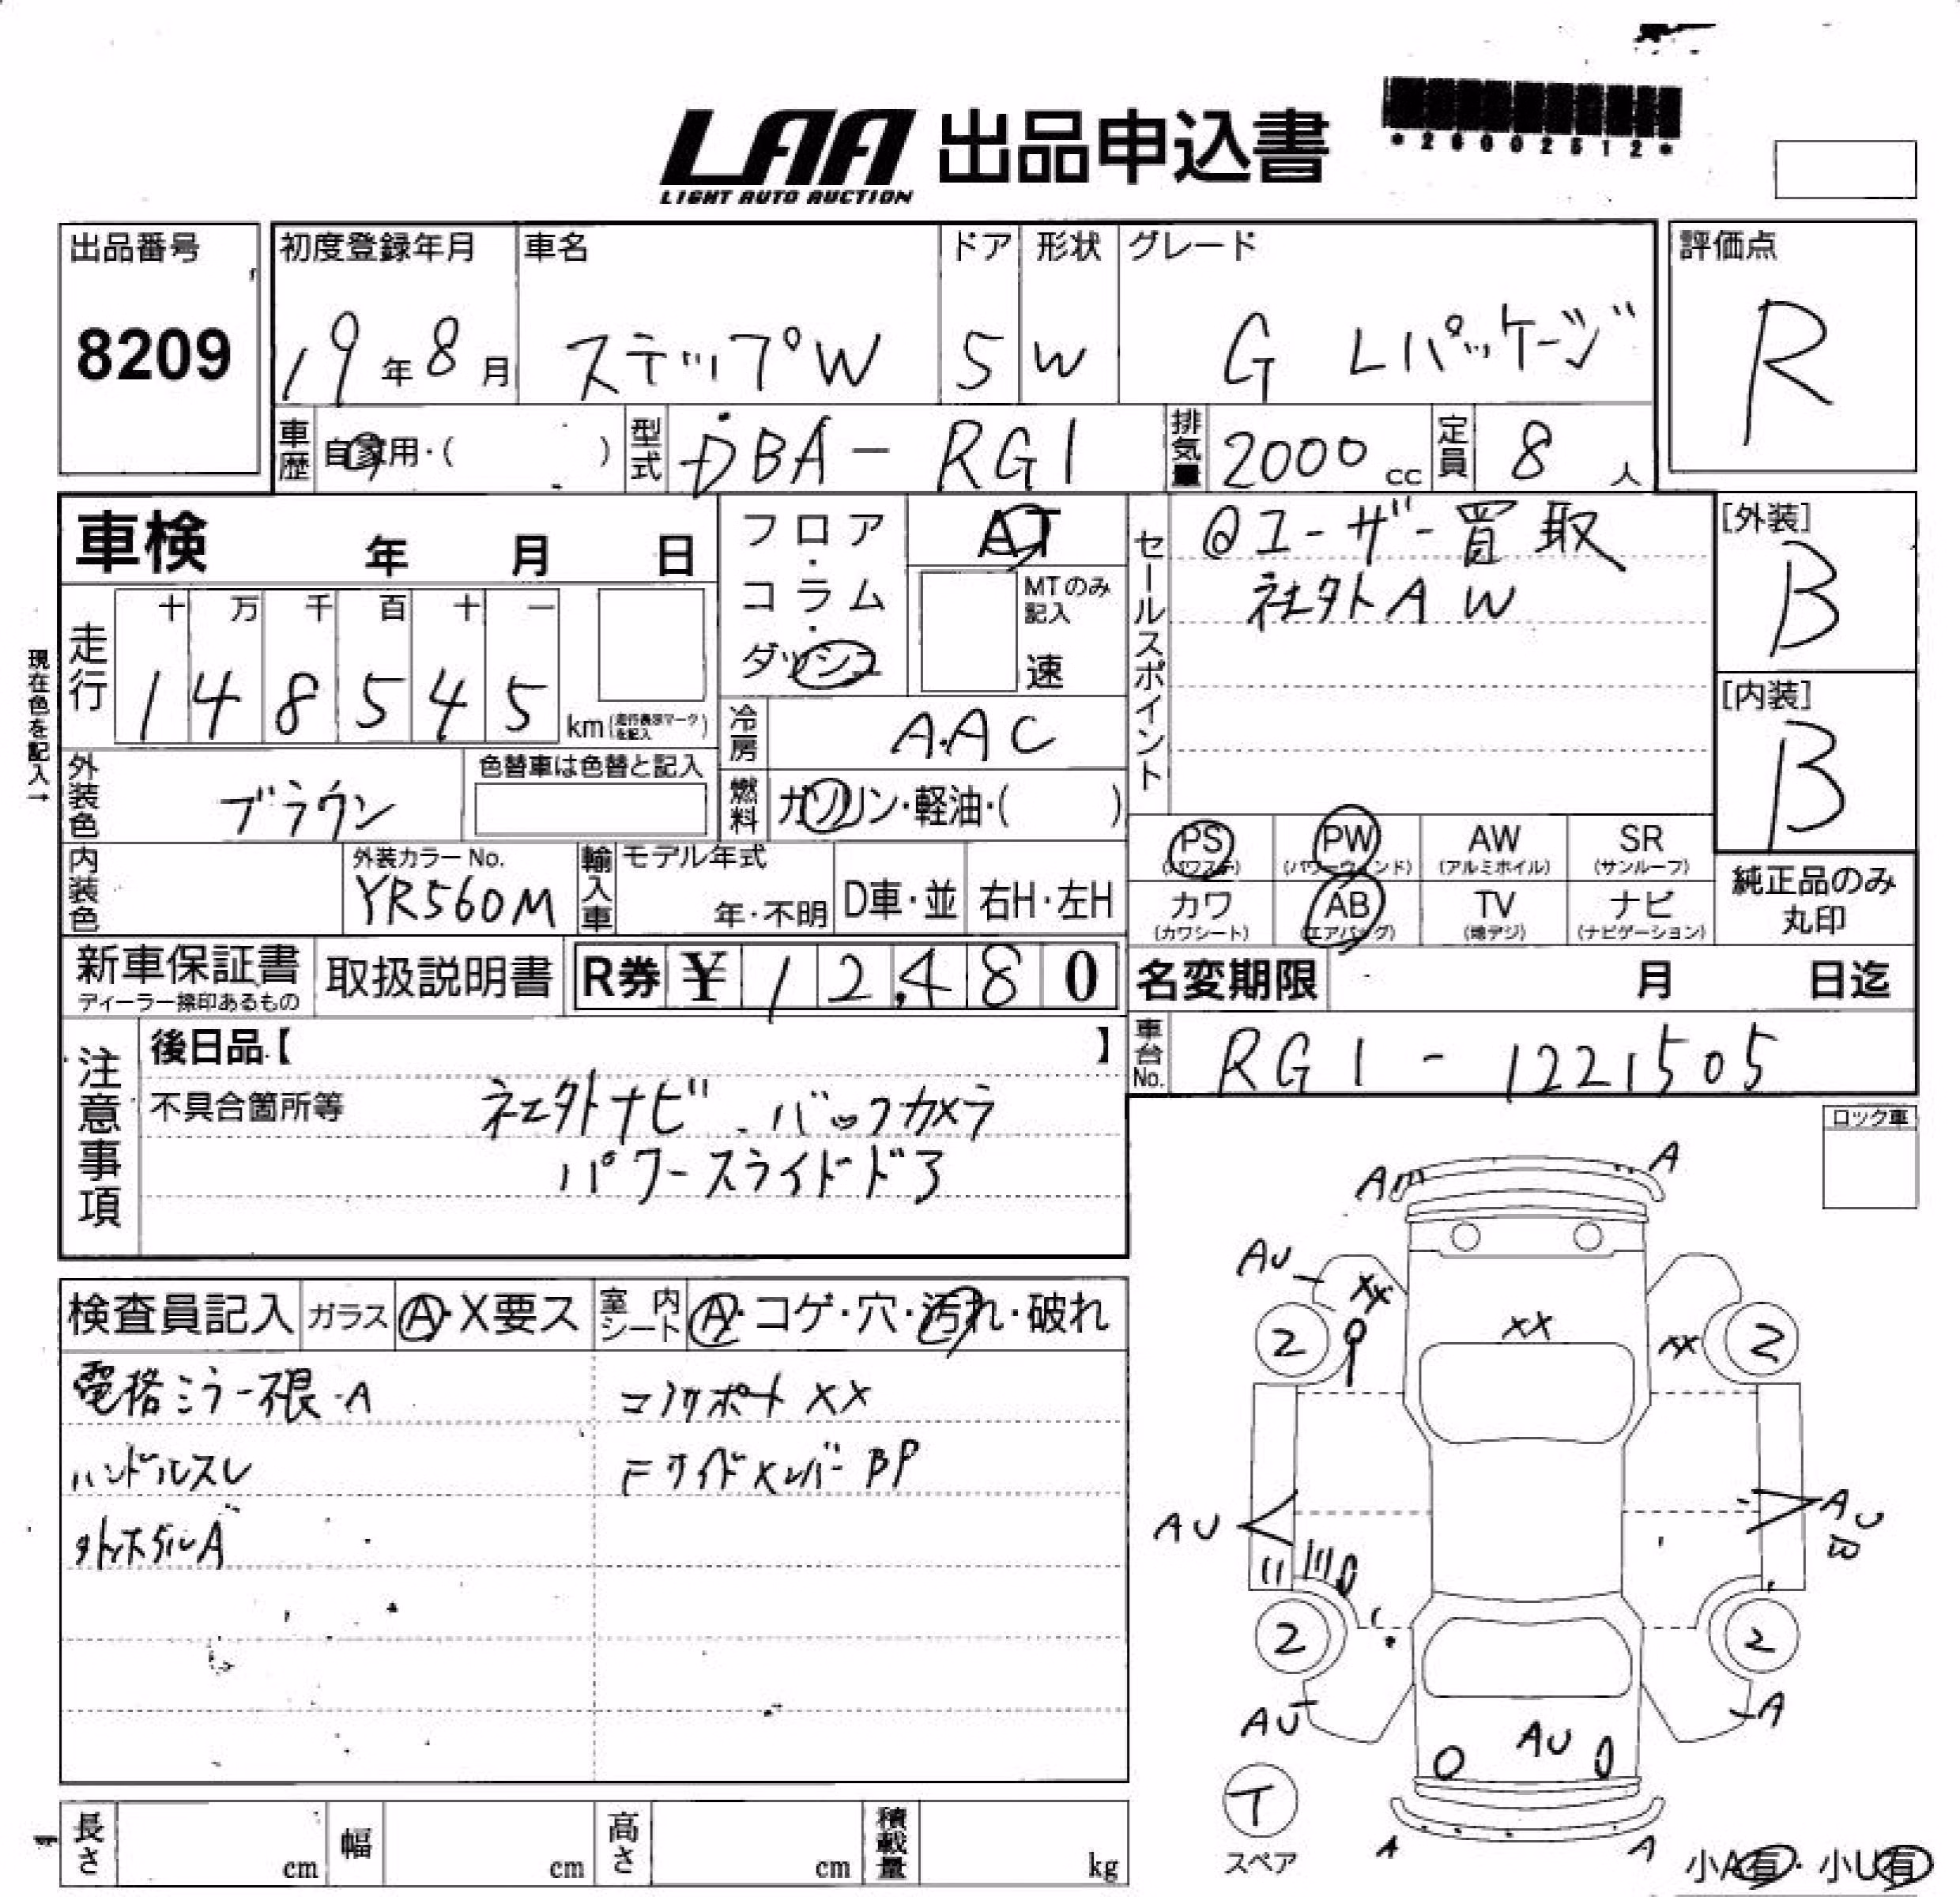 LAA 出品申込書
LIGHT AUTO AUCTION
*26002612*
出品番号
8209
初度登録年月
19年8月
車名
ステップW
ドア
5
形状
W
グレード
G Lパッケージ
評価点
R
車歴
自家用・( )
型式
DBA-RG1
排気量
2000 cc
定員
8 人
車検 年 月 日
フロア・コラム・ダッシュ
AT
MTのみ記入
速
セールスポイント
@ユーザー買取
社外AW
[外装]
B
[内装]
B
現在色を記入→
走行
十 万 千 百 十 一
1 4 8 5 4 5
km(走行表示マークを記入)
冷房
A.AC
外装色
ブラウン
色替車は色替と記入
燃料
ガソリン・軽油・( )
PS
(パワステ)
PW
(パワーウィンド)
AW
(アルミホイル)
SR
(サンルーフ)
カワ
(カワシート)
AB
(エアバッグ)
TV
(地デジ)
ナビ
(ナビゲーション)
純正品のみ
丸印
内装色
外装カラーNo.
YR560M
輸入車
モデル年式
年・不明
D車・並
右H・左H
新車保証書
ディーラー捺印あるもの
取扱説明書
R券 ¥ 12,480
名変期限 月 日迄
車台No.
RG1-1221505
注意事項
後日品【 】
不具合箇所等
社外ナビ バックカメラ
パワースライドドア
ロック車
検査員記入
ガラス
A・X要ス
室内シート
A・コゲ・穴・汚れ・破れ
電格ミラー不良-A
コアサポートXX
ハンドルスレ
FサイドメンバーBP
外ホイルA
A
A
AU
XX
2
XX
XX
2
AU
AU
B
2
2
AU
A
AU
T
スペア
A
A
小A有・小U有
長さ cm
幅 cm
高さ cm
積載量 kg